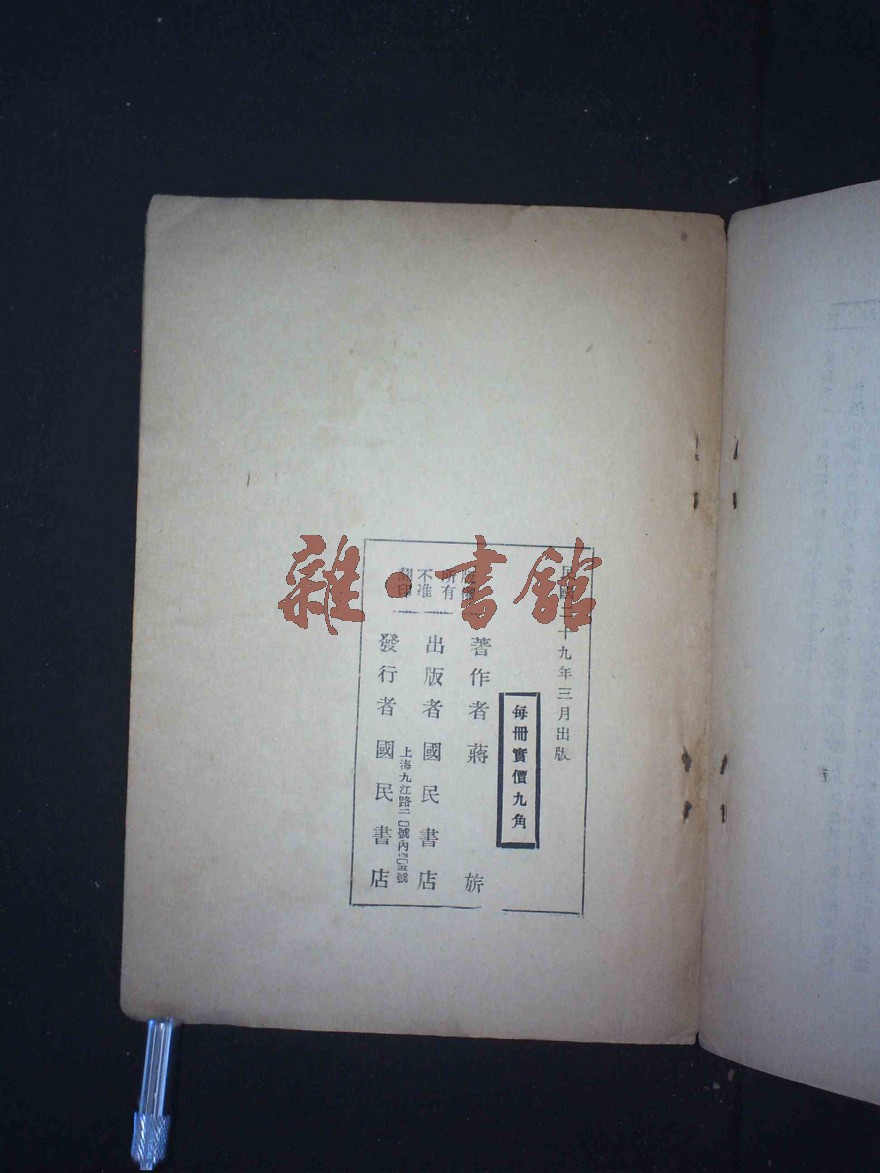 民國二十九年三月出版
每冊實價九角
版權
所有
不准
翻印
著作者 蔣 旂
出版者 國民書店
上海九江路 號內 號
發行者 國民書店
雜·書館